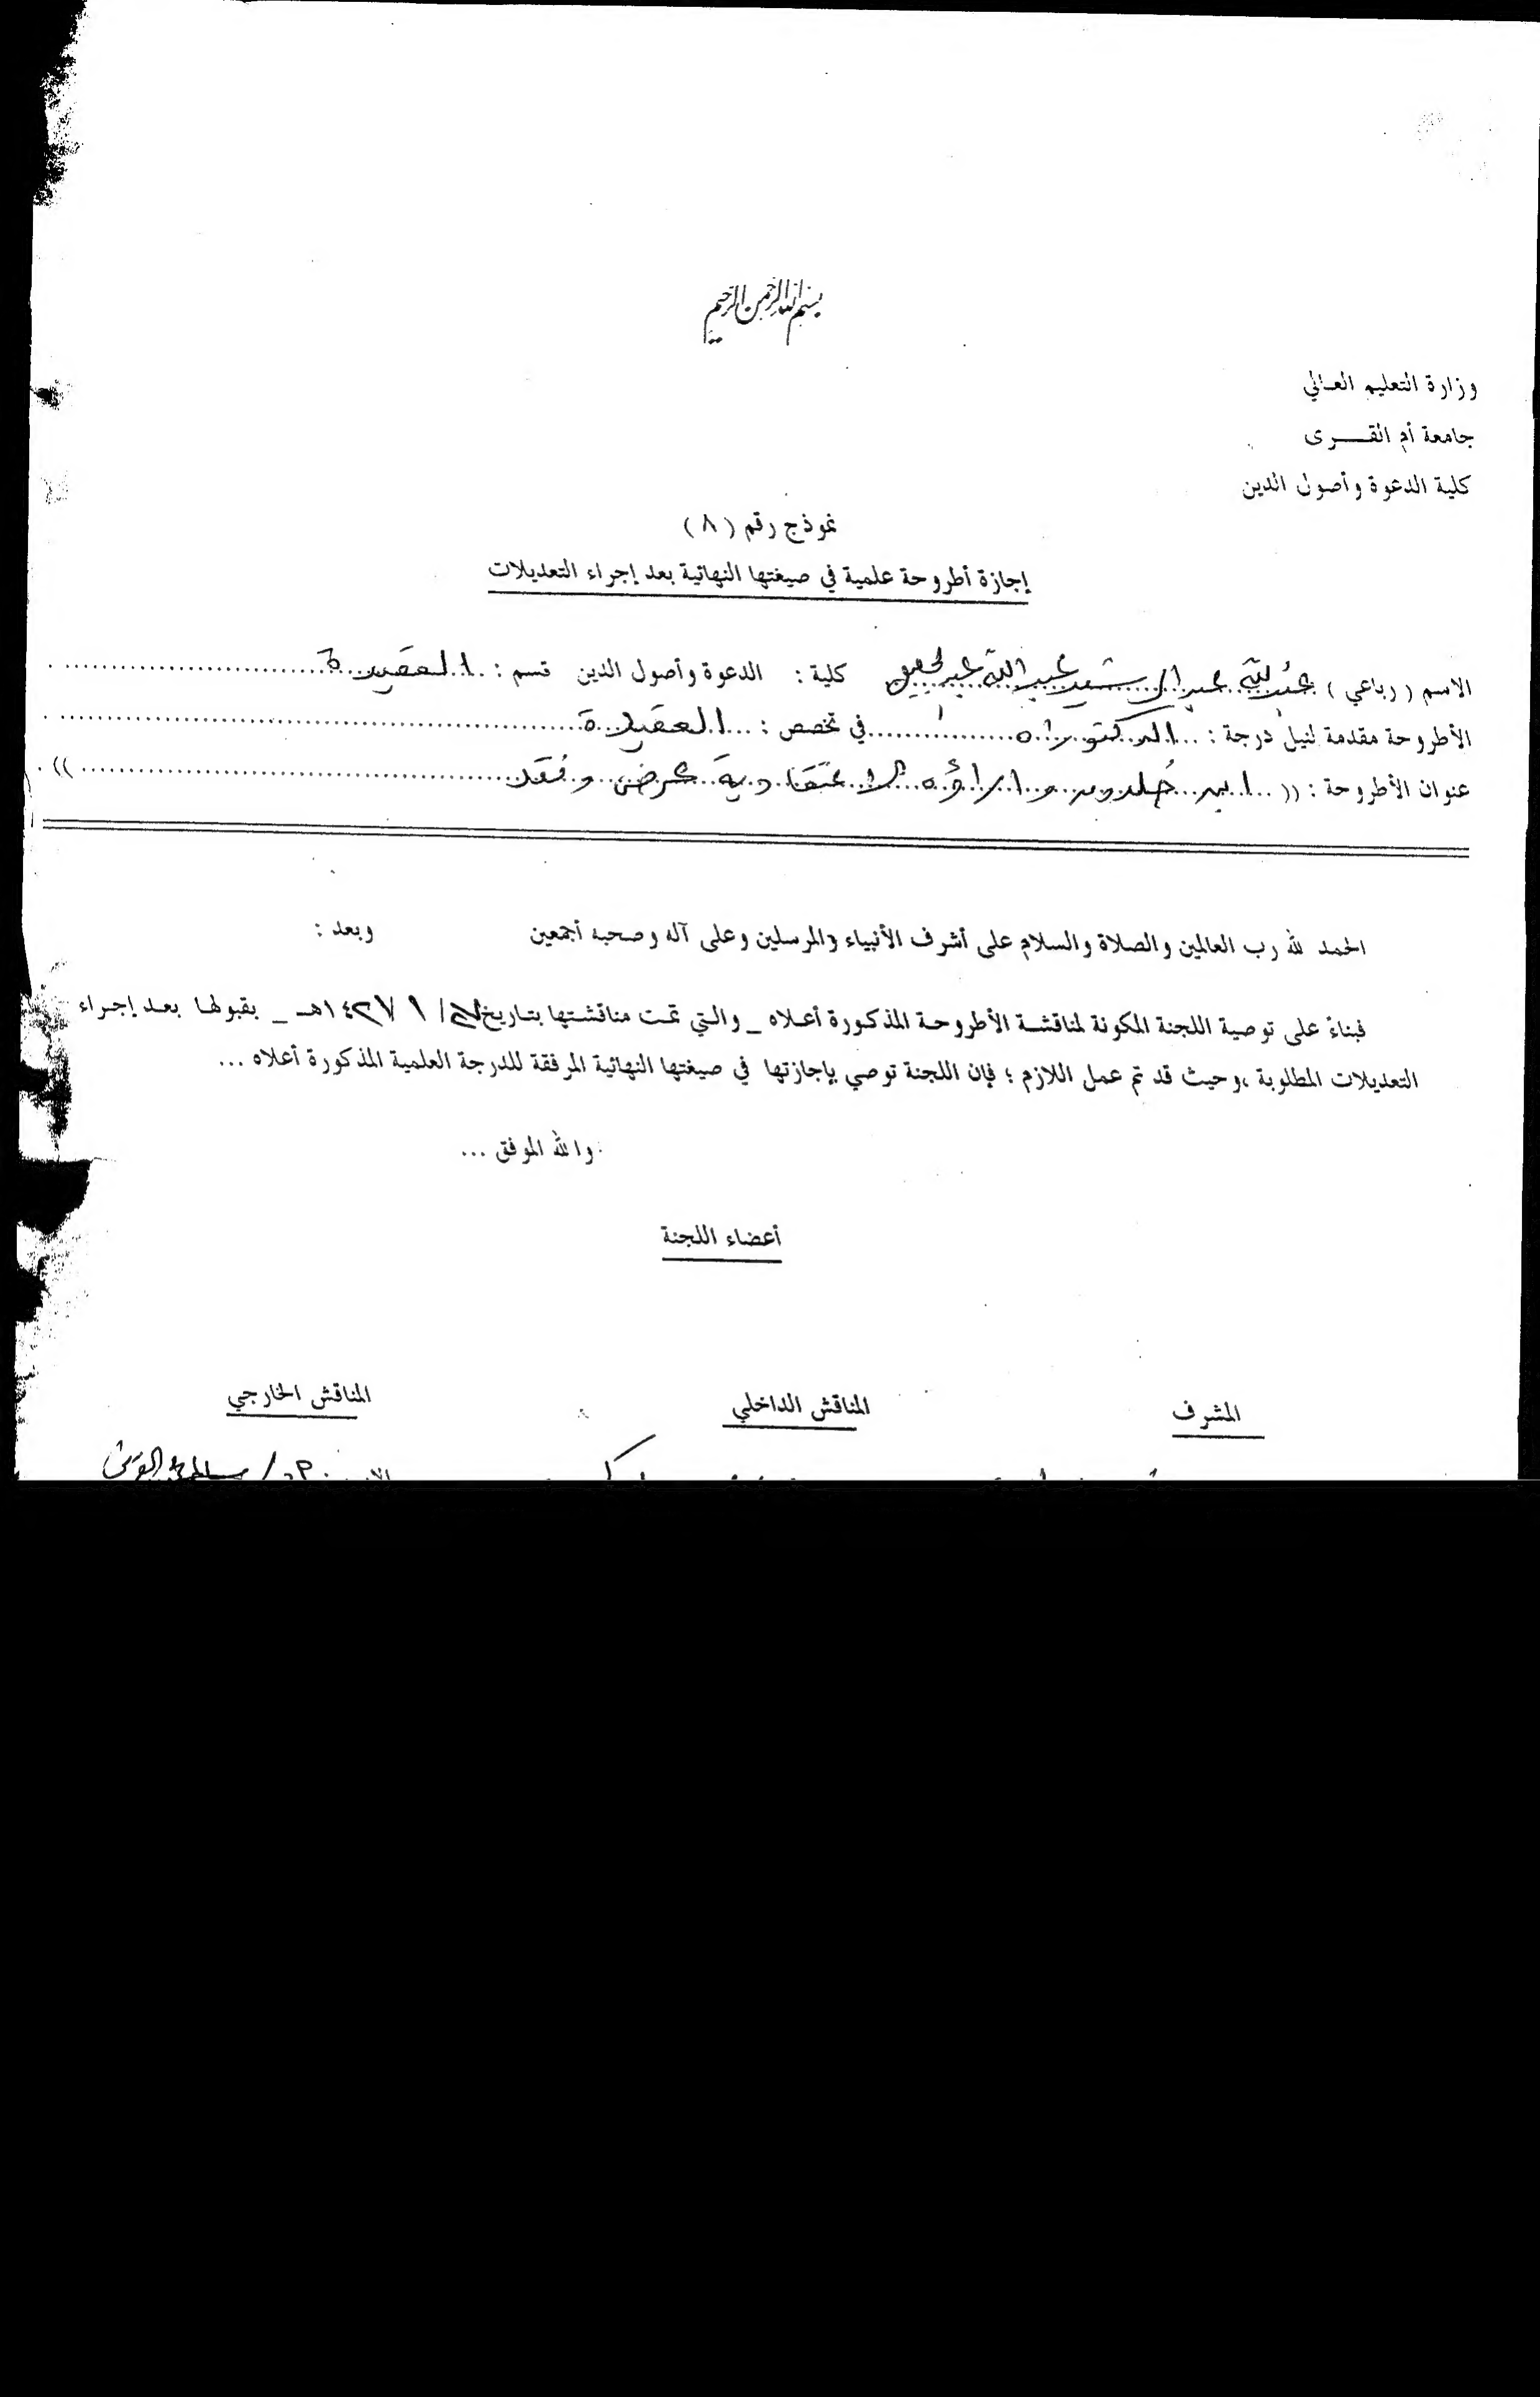 بسم الله الرحمن الرحيم
وزارة التعليم العالي
جامعة أم القرى
كلية الدعوة وأصول الدين
نموذج رقم ( ٨ )
إجازة أطروحة علمية في صيغتها النهائية بعد إجراء التعديلات
الاسم ( رباعي ) عبد الله عبد الرشيد عبد الله عبد الجليل كلية : الدعوة وأصول الدين قسم : العقيدة
الأطروحة مقدمة لنيل درجة : الدكتوراه في تخصص : العقيدة
عنوان الأطروحة : (( ابن خلدون وآراؤه الاعتقادية عرض ونقد )) .
الحمد لله رب العالمين والصلاة والسلام على أشرف الأنبياء والمرسلين وعلى آله وصحبه أجمعين وبعد :
فبناءً على توصية اللجنة المكونة لمناقشة الأطروحة المذكورة أعلاه _ والتي تمت مناقشتها بتاريخ / ١ / ١٤٢٧هـ _ بقبولها بعد إجراء
التعديلات المطلوبة ،وحيث قد تم عمل اللازم ؛ فإن اللجنة توصي بإجازتها في صيغتها النهائية المرفقة للدرجة العلمية المذكورة أعلاه ...
والله الموفق ...
أعضاء اللجنة
المشرف المناقش الداخلي المناقش الخارجي